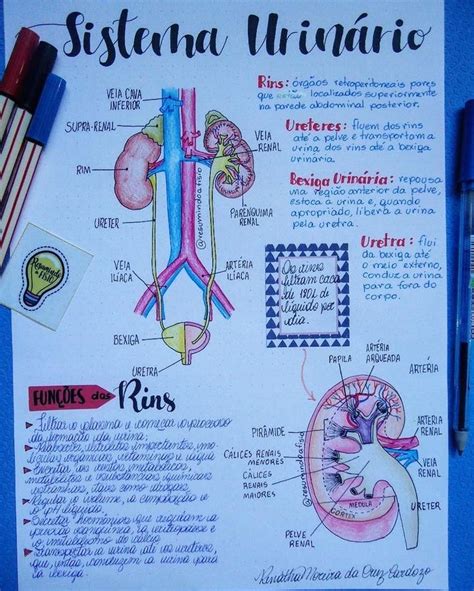 Sistema Urinário
VEIA CAVA
INFERIOR
SUPRA-RENAL
RIM
URETER
VEIA
ILÍACA
BEXIGA
URETRA
VEIA
RENAL
PARÊNQUIMA
RENAL
ARTÉRIA
ILÍACA
@resumindoafisio
Rins: órgãos retroperitoneais pares
que estão localizados superiormente
na parede abdominal posterior.
Ureteres: fluem dos rins
até a pelve e transportam a
urina dos rins até a bexiga
urinária.
Bexiga Urinária: repousa
uma região anterior da pelve,
estoca a urina e, quando
apropriado, libera a urina pela
uretra.
Uretra: flui
da bexiga até
o meio externo,
conduz a urina
para fora do
corpo.
Os rins
filtram cerca
de 180L de
líquido por
dia.
Resumindo
a Fisio
FUNÇÕES dos Rins
Filtrar o plasma e começar o processo
da formação da urina;
Reabsorver nutrientes importantes, mo-
léculas orgânicas,
Excretar os restos metabólicos,
metabólitos e substâncias químicas
Regular o volume, a composição e
o pH
Secretar hormônios que regulam a
pressão sanguínea, a eritropoiese e
o metabolismo do cálcio
Transportar a urina até os ureteres,
que, então, conduzem a urina para
a bexiga.
PAPILA
ARTÉRIA
ARQUEADA
ARTÉRIA
PIRÂMIDE
CÁLICES RENAIS
MENORES
CÁLICES
RENAIS
MAIORES
PELVE
RENAL
MEDULA
CÓRTEX
ARTÉRIA
RENAL
VEIA
RENAL
URETER
@resumindoafisio
Renatha Moreira da Cruz Cardozo